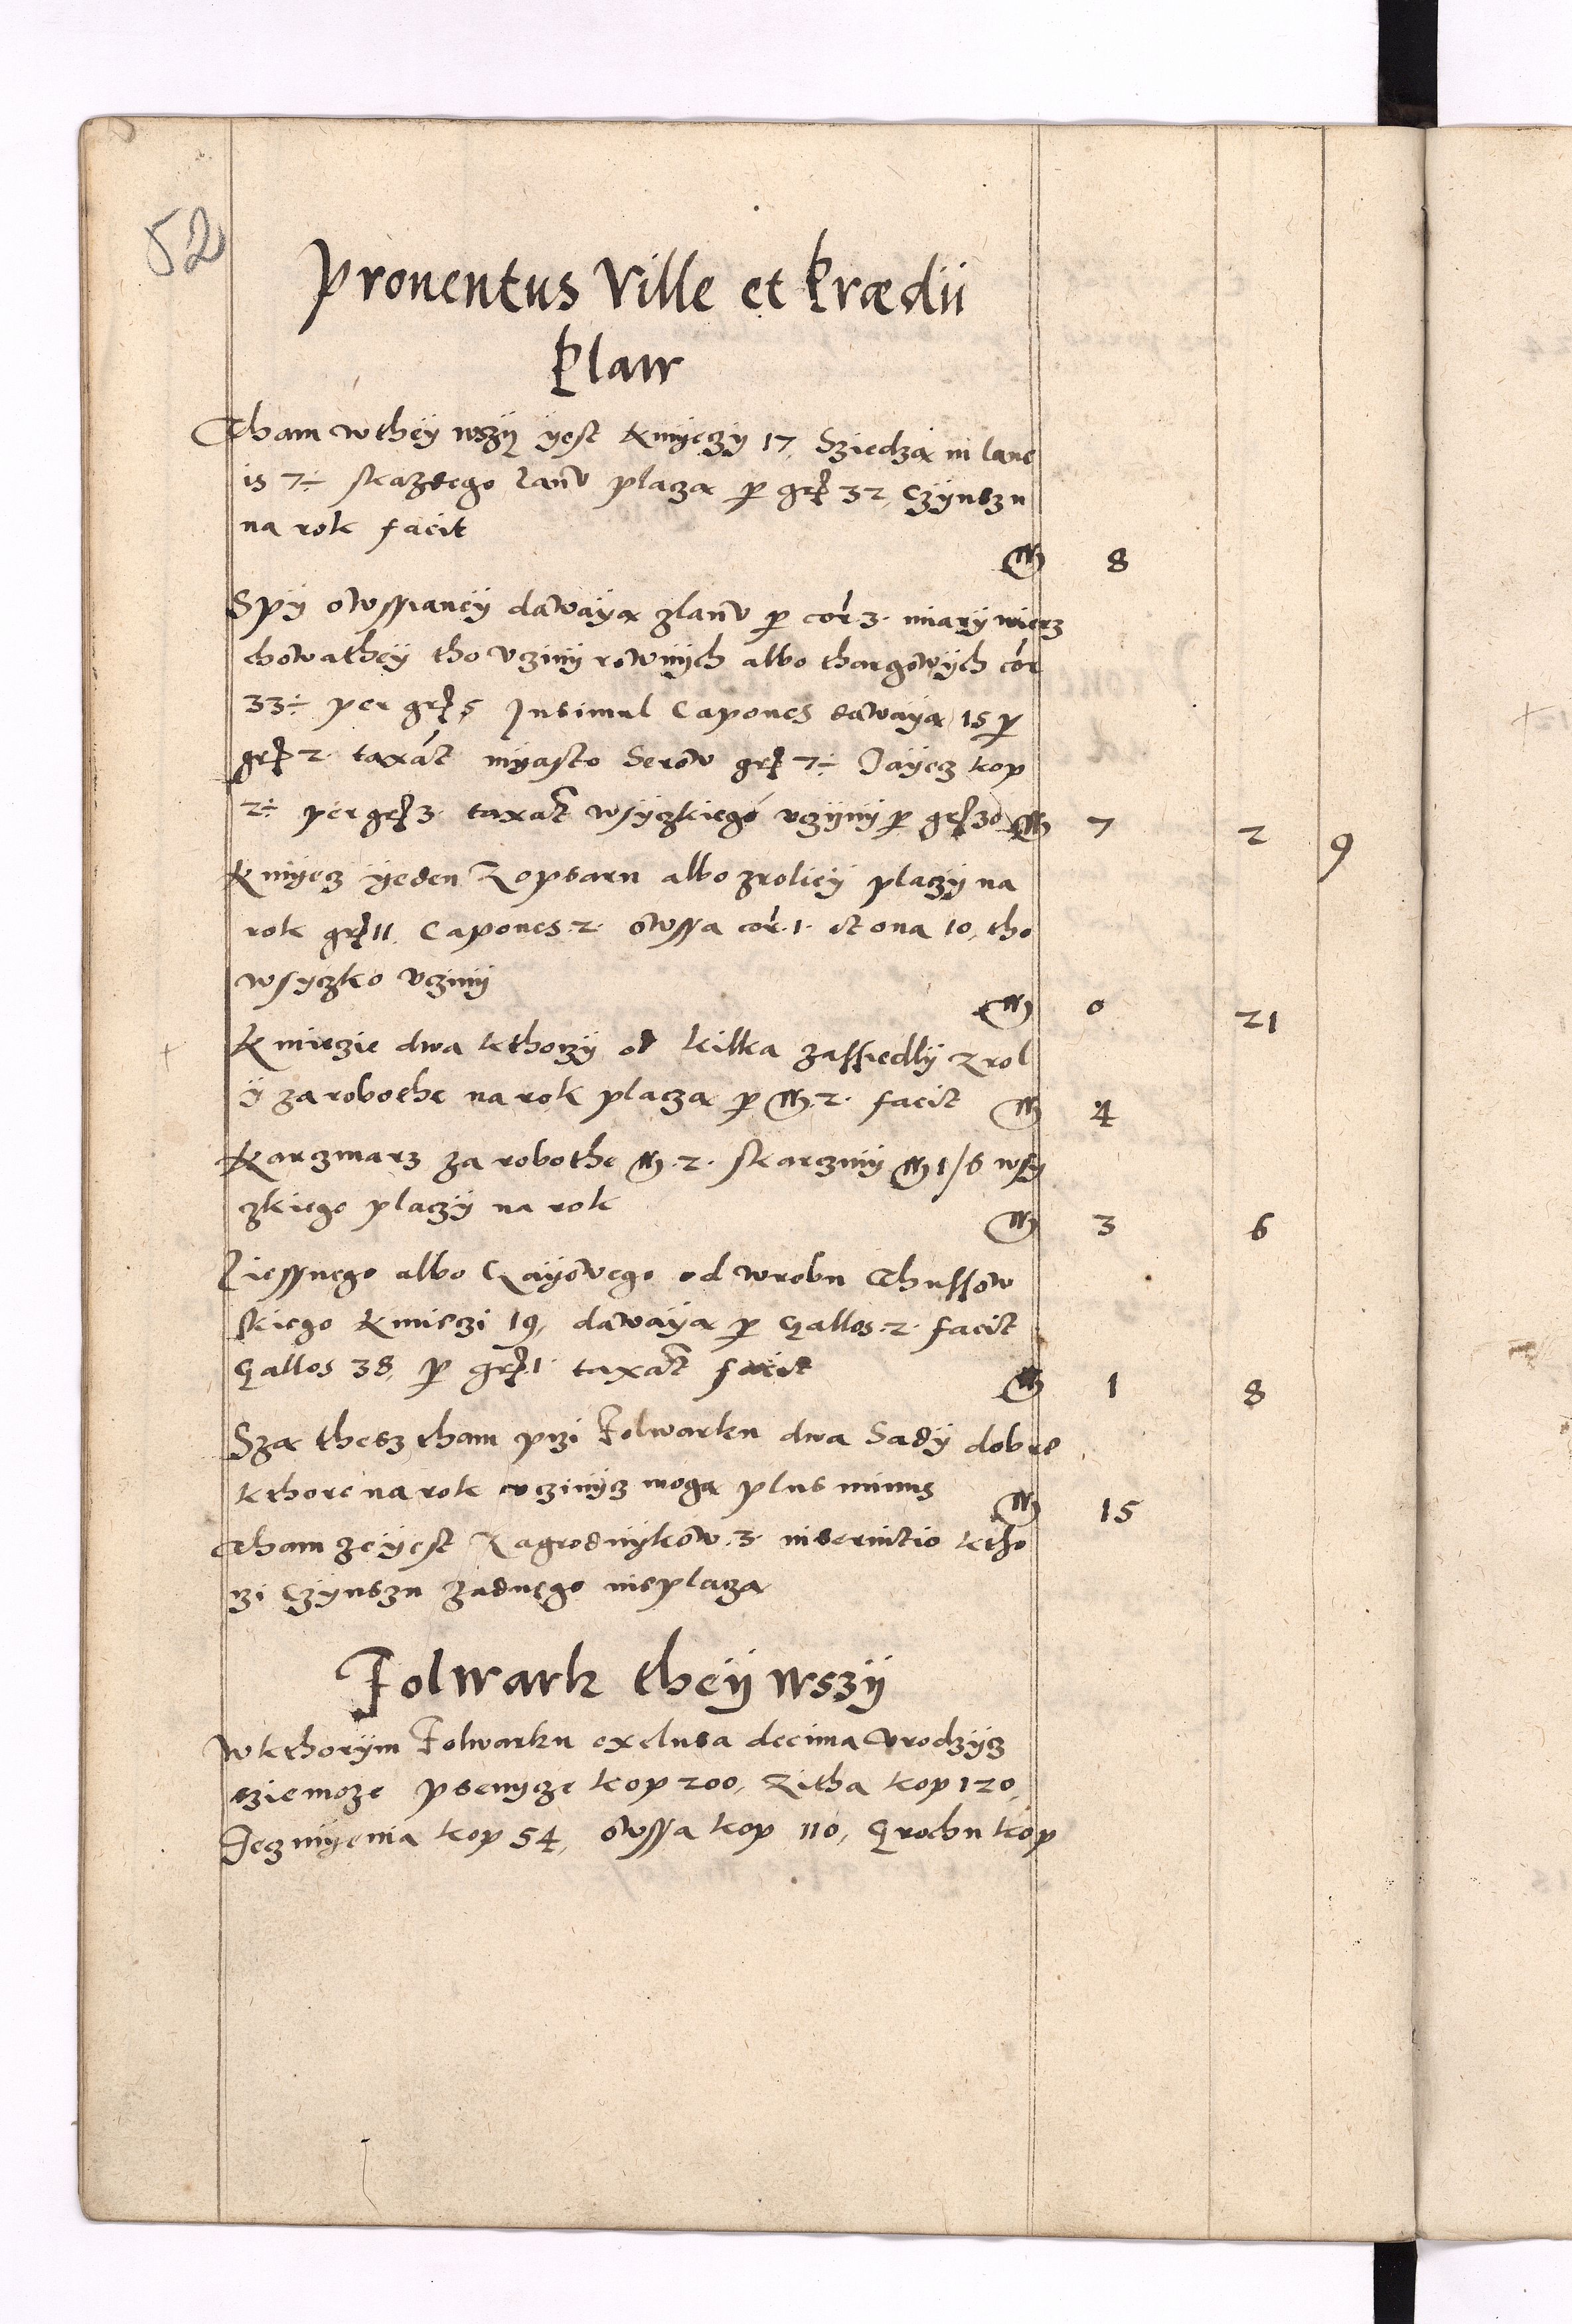 52
Prouentus Ville et Prædii
Klaw
Tham wtheÿ wszÿ ÿest Kmyeczÿ 17, Sziedzą in lane
is 7÷ skazdego lanv placzą p gr 32, czÿnszu
na rok facit
M 8
Spÿ owssianeÿ dawaÿą zlanv p cor. 3. miarÿ wierz
chowatheÿ tho vczinÿ rownÿch albo thargowÿch cor
33÷ per gr 5 Insimul Capones dawaÿą 15 p
gr 2. taxat mÿasto Serow gr 7÷ Jaÿecz kop
2÷ per gr 3. taxat wsÿzkiego vczÿnÿ p gr 30 M 7 2 9
Kmÿecz ÿeden Zopsarn albo zroliey placzÿ na
rok gr 11. Capones .2. owssa cor. 1. et oua 10, tho
wsyczko vczinÿ
M 0 21
Kmiezie dwa kthorzÿ od kilka zassiedlÿ Zrol
ÿ za robothe na rok placzą p M. 2. facit M 4
Karczmarz za robothe M. 2. skarczmÿ M 1/6 wsÿ
zkiego placzÿ na rok
M 3 6
Liessnego albo Gaÿowego od wrobu Thussow
skiego Kmieczi 19, dawaÿą p Gallos .2. facit
Gallos 38, p gr .1. taxat facit
M 1 8
Szą thesz tham przi Folwarku dwa Sadÿ dobre
kthore na rok vczinÿcz mogą plus minus
M 15
Tham ze ÿest Zagrodnÿkow .3. inseruitio ktho
rzi czÿnszu zadnego nieplaczą
Folwark theÿ wszÿ
W kthorÿm Folwarku exclusa decima vrodzÿcz
szie moze psenycze kop 200, Zitha kop 120,
Jeczmÿenia kop 54, owssa kop 110, Grochu kop